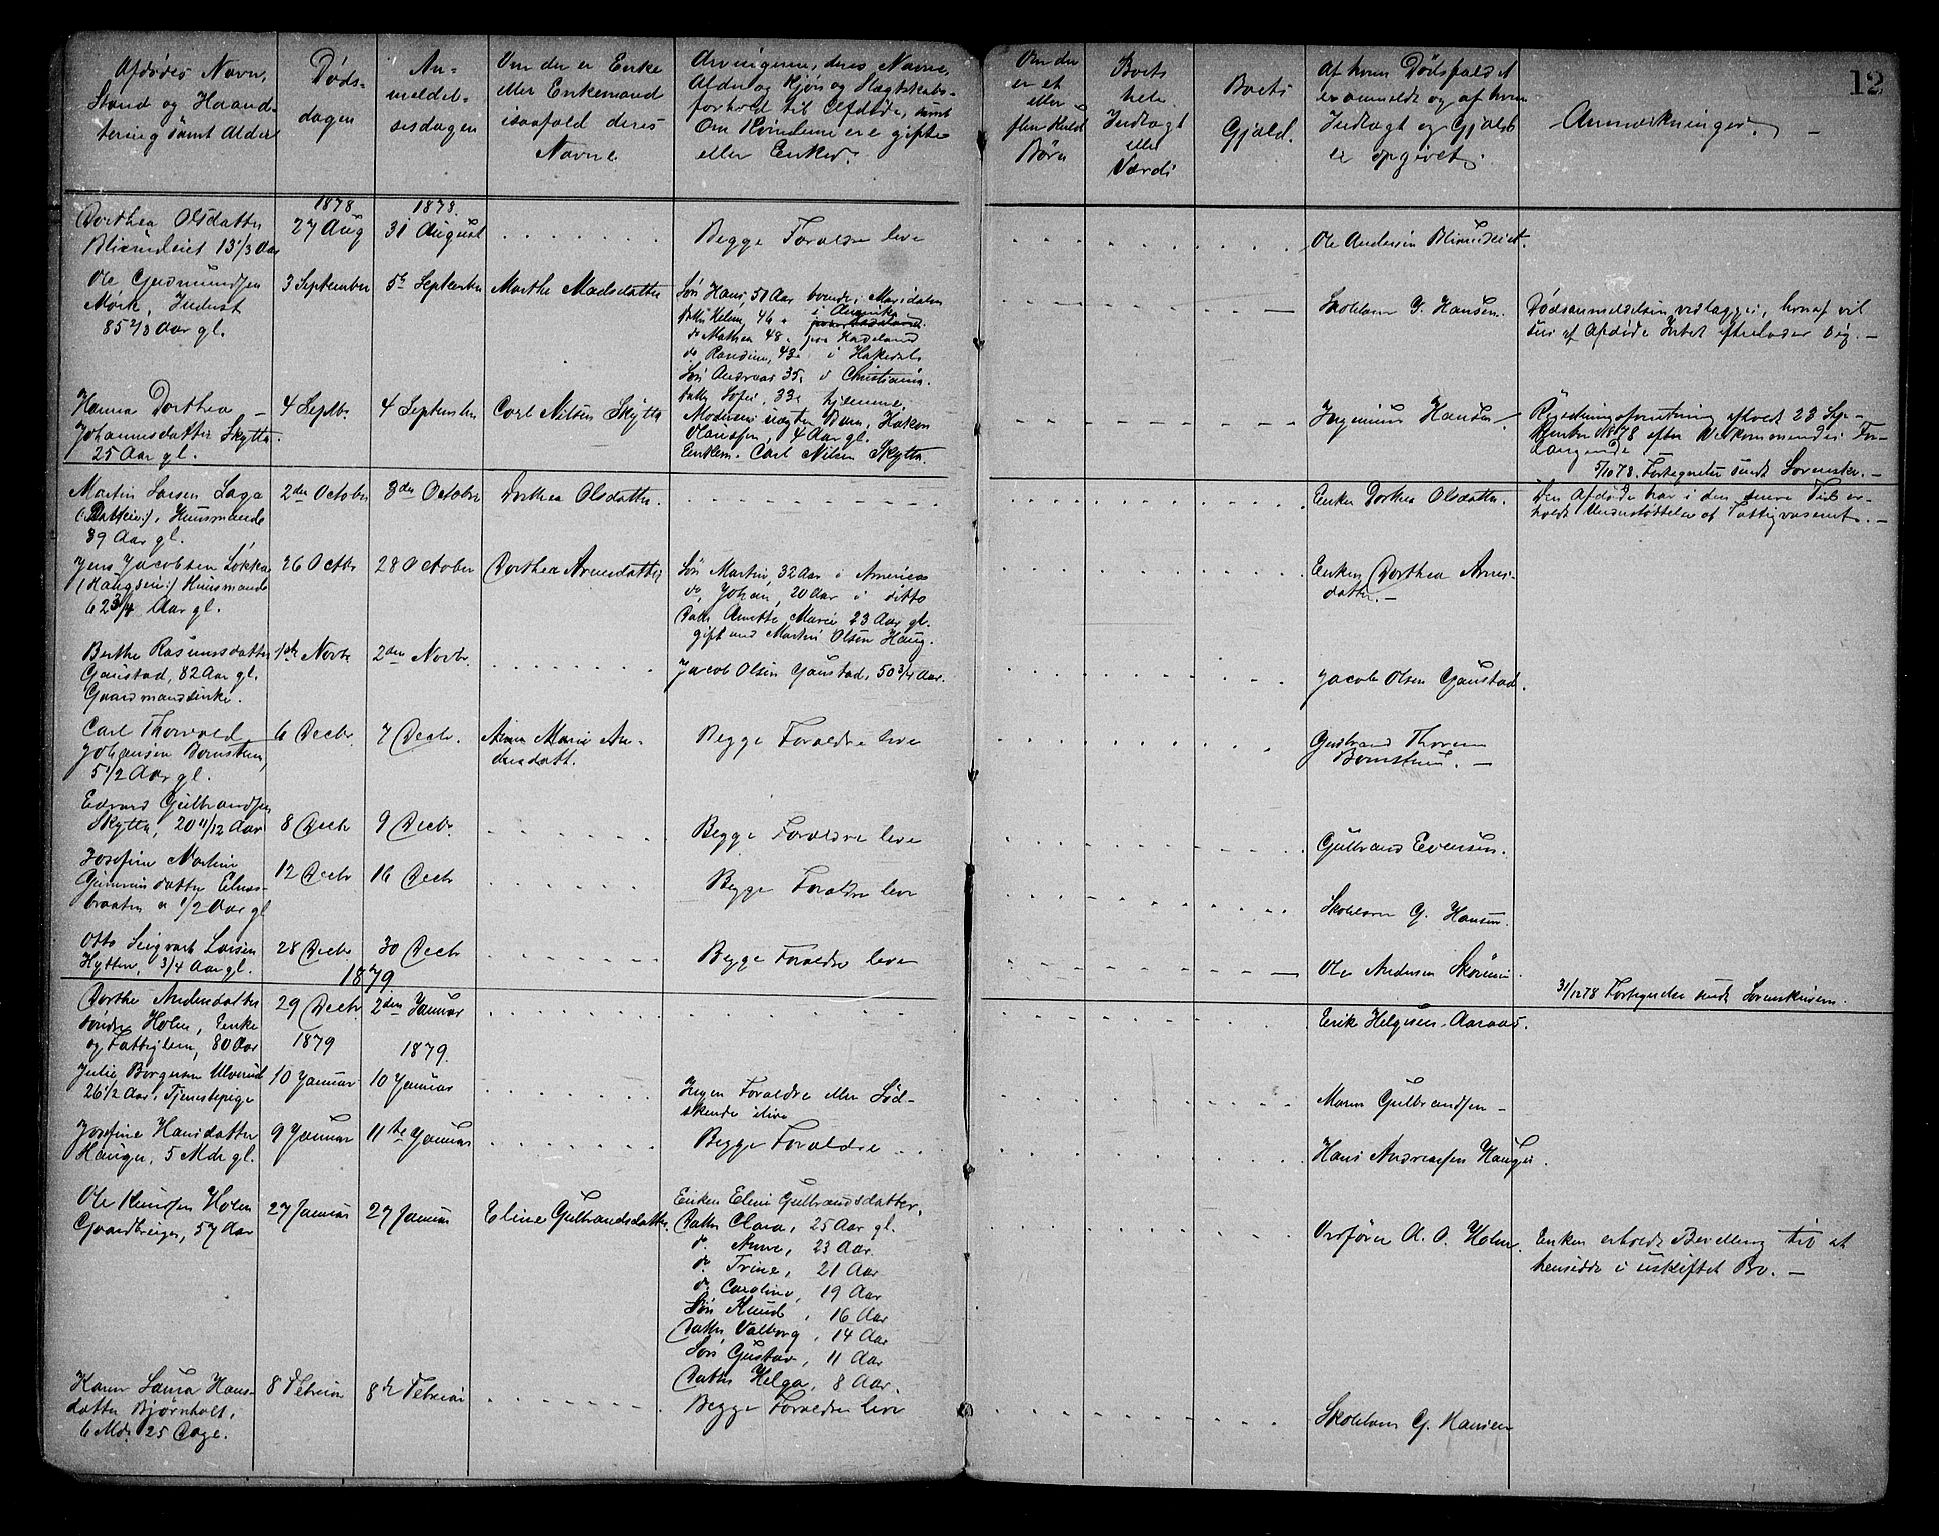 12
Afdødes Navn,
Stand og Haand-
tering samt Alder
Døds-
dagen
An-
meldel-
sesdagen
Om der er Enke
eller Enkemand
isaafald deres
Navne
Arvingerne, deres Navne,
Alder og Kjøn og Slægtskabs-
forhold til Afdøde, samt
Om Kvinderne ere gifte
eller Enker.
Om der
er et
eller
flere Kuld
Børn
Boets
hele
Indtægt
eller
Værdi
Boets
Gjæld.
Af hvem Dødsfaldet
er anmeldt og af hvem
Indtægt og Gjæld
er opgivet.
Anmærkninger. —
1878
1878.
Dorthea Olsdatter
13 1/3 Aar
27 Aug
31 August
Begge Forældre leve
Ole Andersen
Ole Gudmundsen
Mörk, Inderst
85 2/3 Aar gl.
3 September
5te September
Marthe Madsdatter
Søn Hans 51 Aar boende i Maridalen
datter Helene, 46 " i Amerika
do Mathea 48 " paa Hadeland
do Randine, 43 " i Hakedal
Søn Andreas 35 " i Christiania.
datter Sofie, 33 " hjemme.
Skolelærer G. Hansen.
Dødsanmeldelsen vedlægges, hvoraf vil
sees af Afdøde Intet efterlader sig. —
Hanna Dorthea —
Johannesdatter Skytta.
25 Aar gl.
4 Septbr
4 September
Carl Nilsen Skytta
Moderens uægte Barn, Hakon
Hansen, 4 Aar gl.
Enkem. Carl Nilsen Skytta.
Ingenius Hansen —
Registreringsforretning afholdt 23 Sep-
tember 1878 efter Vedkommendes For-
langende —
5/10 78. Fortegnelse sendt Sorenskr. —
Martin Larsen Laga
Huusmand
89 Aar gl.
2den October
3die October
Dorthea Olsdatter.
Enken Dorthea Olsdatter.
Den Afdøde har i den senere Tid er-
holdt Understøttelse af Fattigvæsenet. —
Jens Jacobsen Løkka
(Haugseie) Huusmand
62 3/4 Aar gl.
26 Octbr
28 October
Dorthea Arnesdatter
Søn Martin, 32 Aar i America
do, Johan, 20 Aar i ditto
Datter Anette Marie 23 Aar gl.
gift med Martin Olsen Haug.
Enken Dorthea Arnes-
datter. —
Berthe Rasmusdatter
Gaustad, 82 Aar gl.
Gaardmandsenke.
1ste Novbr
2den Novbr.
Jacob Olsen Gaustad, 50 3/4 Aar.
Jacob Olsen Gaustad.
Carl Thorvald
Johansen Bomstuen,
5 1/2 Aar gl.
6 Decbr
7 Decbr.
Anne Marie An-
dersdatt.
Begge Forældre leve
Gudbrand Thoresen
Bomstuen. —
Edvard Gulbrandsen
Skytta, 20 11/12 Aar
8 Decbr
9 Decbr.
Begge Forældre leve
Gulbrand Evensen.
Josefine Martine
Elnes-
braaten a 1/2 Aar gl
12 Decbr
16 Decbr
Begge Forældre leve
Skolelærer G. Hansen.
Otto Seigvart Larsen
Hytten, 3/4 Aar gl.
28 Decbr
30 Decbr
Begge Forældre leve
Ole Andersen
31/12 78 Fortegnelse sendt Sorenskriveren.
1879.
Dorthe Andersdatter
søndre Holm, Enke
og Fattiglem, 80 Aar
29 Decbr
2den Januar
Erik Helgesen Aaraas.
1879
1879.
Julie Borgersen Ulverud
26 1/2 Aar, Tjenestepige
10 Januar
10 Januar
Ingen Forældre eller Sød-
skende ilive
Maren Gulbrandsen —
Josefine Hansdatter
Haugen, 5 Mdr gl.
9 Januar
11te Januar
Begge Forældre . . .
Hans Andreassen Haugen.
Ole Knudsen Holm
Gaardbruger, 57 Aar
27 Januar
27 Januar
Eline Gulbrandsdatter.
Enken Eline Gulbrandsdatter.
Datter Clara, 25 Aar gl.
do. Anne, 23 Aar.
do. Trine, 21 Aar
do. Caroline, 19 Aar
Søn Knud, 16 Aar
Datter Valborg, 14 Aar
Søn Gustav, 11 Aar
Datter Helga, 8 Aar.
Ordfører A. O. Holm.
Enken erholdt Bevilling til at
hensidde i uskiftet Bo. —
Karen Laura Hans-
datter Bjørnholt,
6 Mdr 25 Dage.
8 Februar
8de Februar
Begge Forældre leve
Skolelærer G. Hansen